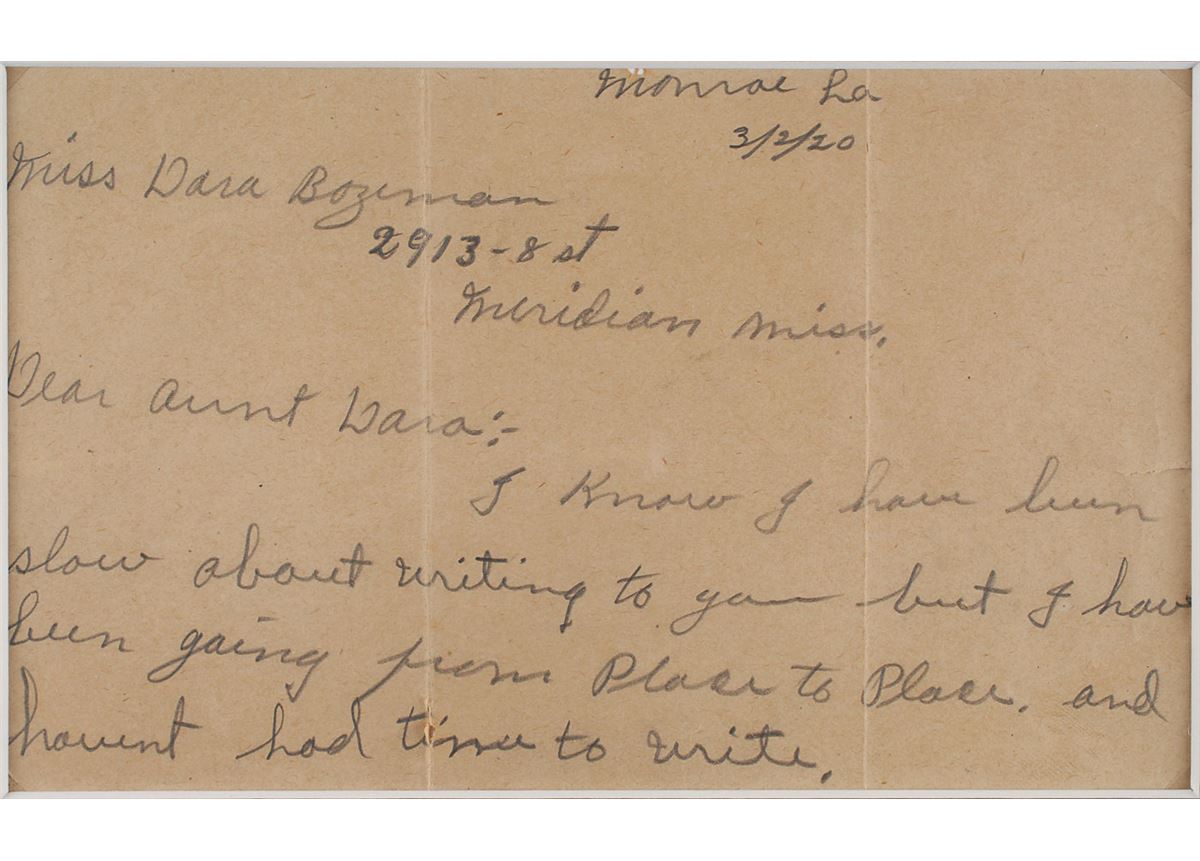 Monroe La
3/2/20
Miss Dara Bozeman
2913-8 st
Meridian Miss.
Dear Aunt Dara:-
I Know I have been
slow about writing to you but I have
been going from Place to Place. and
havent had time to write.